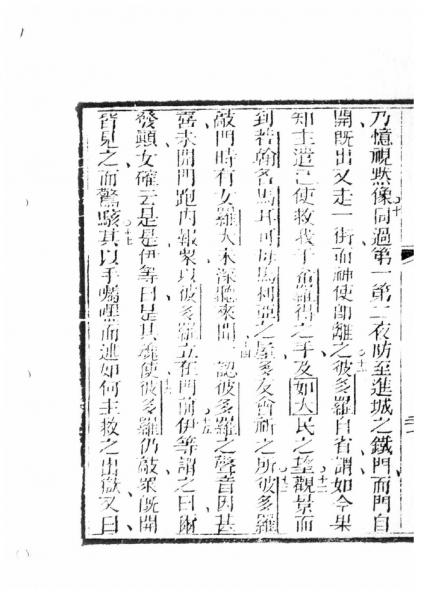 乃憶視默像同過第一第二夜防至進城之鐵門而門自
開旣出又走一街而神使卽離之彼多羅自省謂如今果
知主遣己使救我于希羅得之手及如大民之望觀景而
到若翰名馬耳可母馬利亞之屋多友會祈之所彼多羅
敲門時有女羅大來深聽來聞認彼多羅之聲音因甚
喜未開門跑內報衆以彼多羅立在門前伊等謂之曰爾
發顛女確云是是伊等曰是其魂使彼多羅仍敲衆旣開
皆見之而驚駭其以手囑嘿而述如何主救之出獄又曰